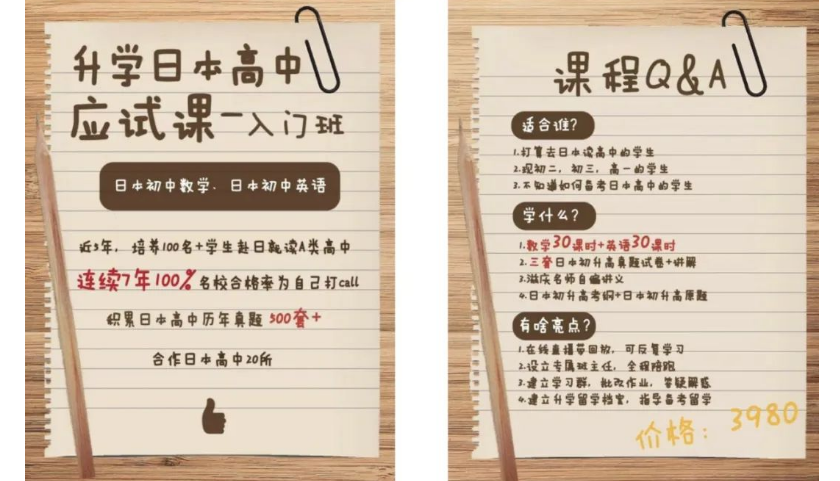 升学日本高中
应试课-入门班
日本初中数学、日本初中英语
近5年，培养100名+学生赴日就读A类高中
连续7年100%名校合格率为自己打call
积累日本高中历年真题500套+
合作日本高中20所
课程Q&A
适合谁?
1.打算去日本读高中的学生
2.现初二，初三，高一的学生
3.不知道如何备考日本高中的学生
学什么?
1.数学30课时+英语30课时
2.三套日本初升高真题试卷+讲解
3.滋庆名师自编讲义
4.日本初升高考纲+日本初升高原题
有啥亮点?
1.在线直播带回放，可反复学习
2.设立专属班主任，全程陪跑
3.建立学习群，批改作业，答疑解惑
4.建立升学留学档案，指导备考留学
价格：3980